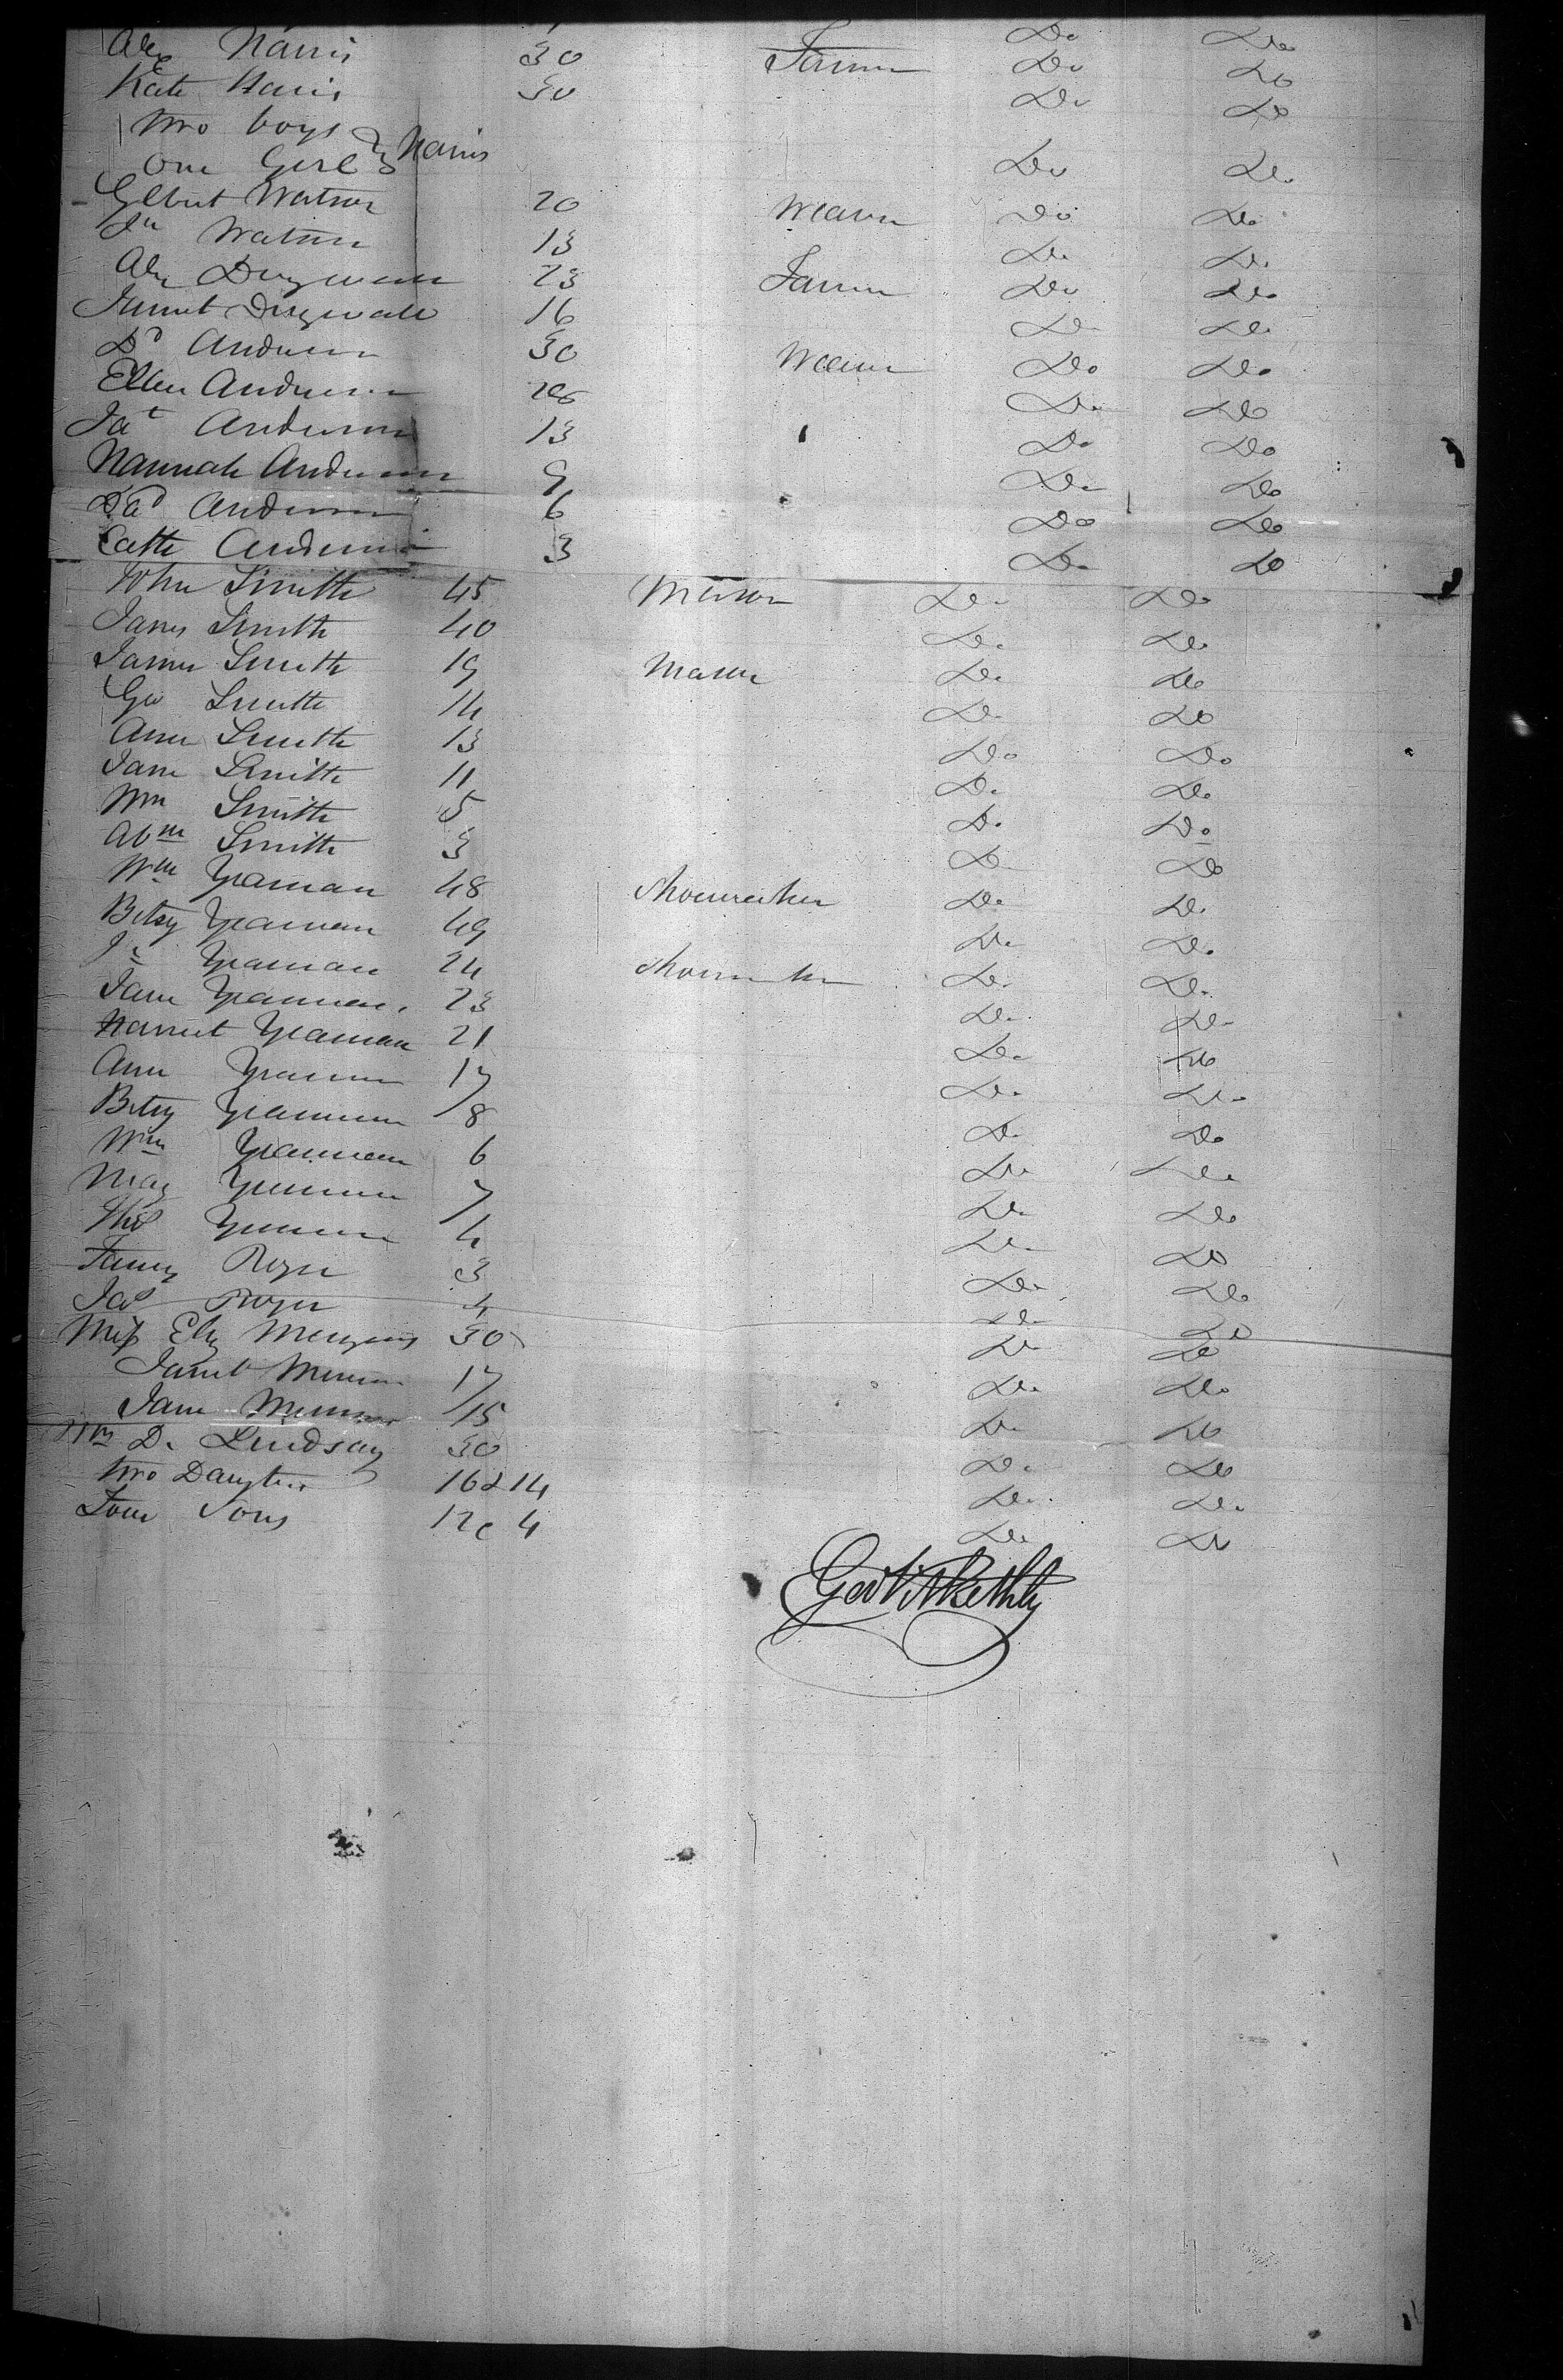 Alex Harris 30 Farmer Do Do
Kate Harris 30 Do Do
two boys & Harris
One Girl Do Do
Gilbert Watson 20 Weaver Do Do
Jn Watson 13 Do Do
Alex Dingwall 23 Farmer Do Do
Jannet Dingwall 16 Do Do
Dd Anderson 30 Weaver Do Do
Ellen Anderson 26 Do Do
Jas Anderson 13 Do Do
Hannah Anderson 9 Do Do
Dad Anderson 6 Do Do
Cathe Anderson 3 Do Do
John Smith 45 Mason Do Do
Smith 40 Do Do
James Smith 19 Mason Do Do
Geo Smith 14 Do Do
Ann Smith 13 Do Do
Jane Smith 11 Do Do
Wm Smith 5 Do Do
Abm Smith 3 Do Do
Wm Yeaman 48 Shoemaker Do Do
Betsy Yeaman 49 Do Do
Jn Yeaman 24 Shoemaker Do Do
Jane Yeaman 23 Do Do
Harriet Yeaman 21 Do Do
Ann Yeaman 17 Do Do
Betsy Yeaman 8 Do Do
Wm Yeaman 6 Do Do
Mag Yeaman 7 Do Do
Thos Yeaman 4 Do Do
Fanny Roger 3 Do Do
Jas Roger 4 Do Do
Miss Eliz Menzies 30 Do Do
Janet 17 Do Do
Jane 15 Do Do
D. Lindsay 30 Do Do
two Daughters 16 & 14 Do Do
Four Sons 12 4 Do Do
Geo